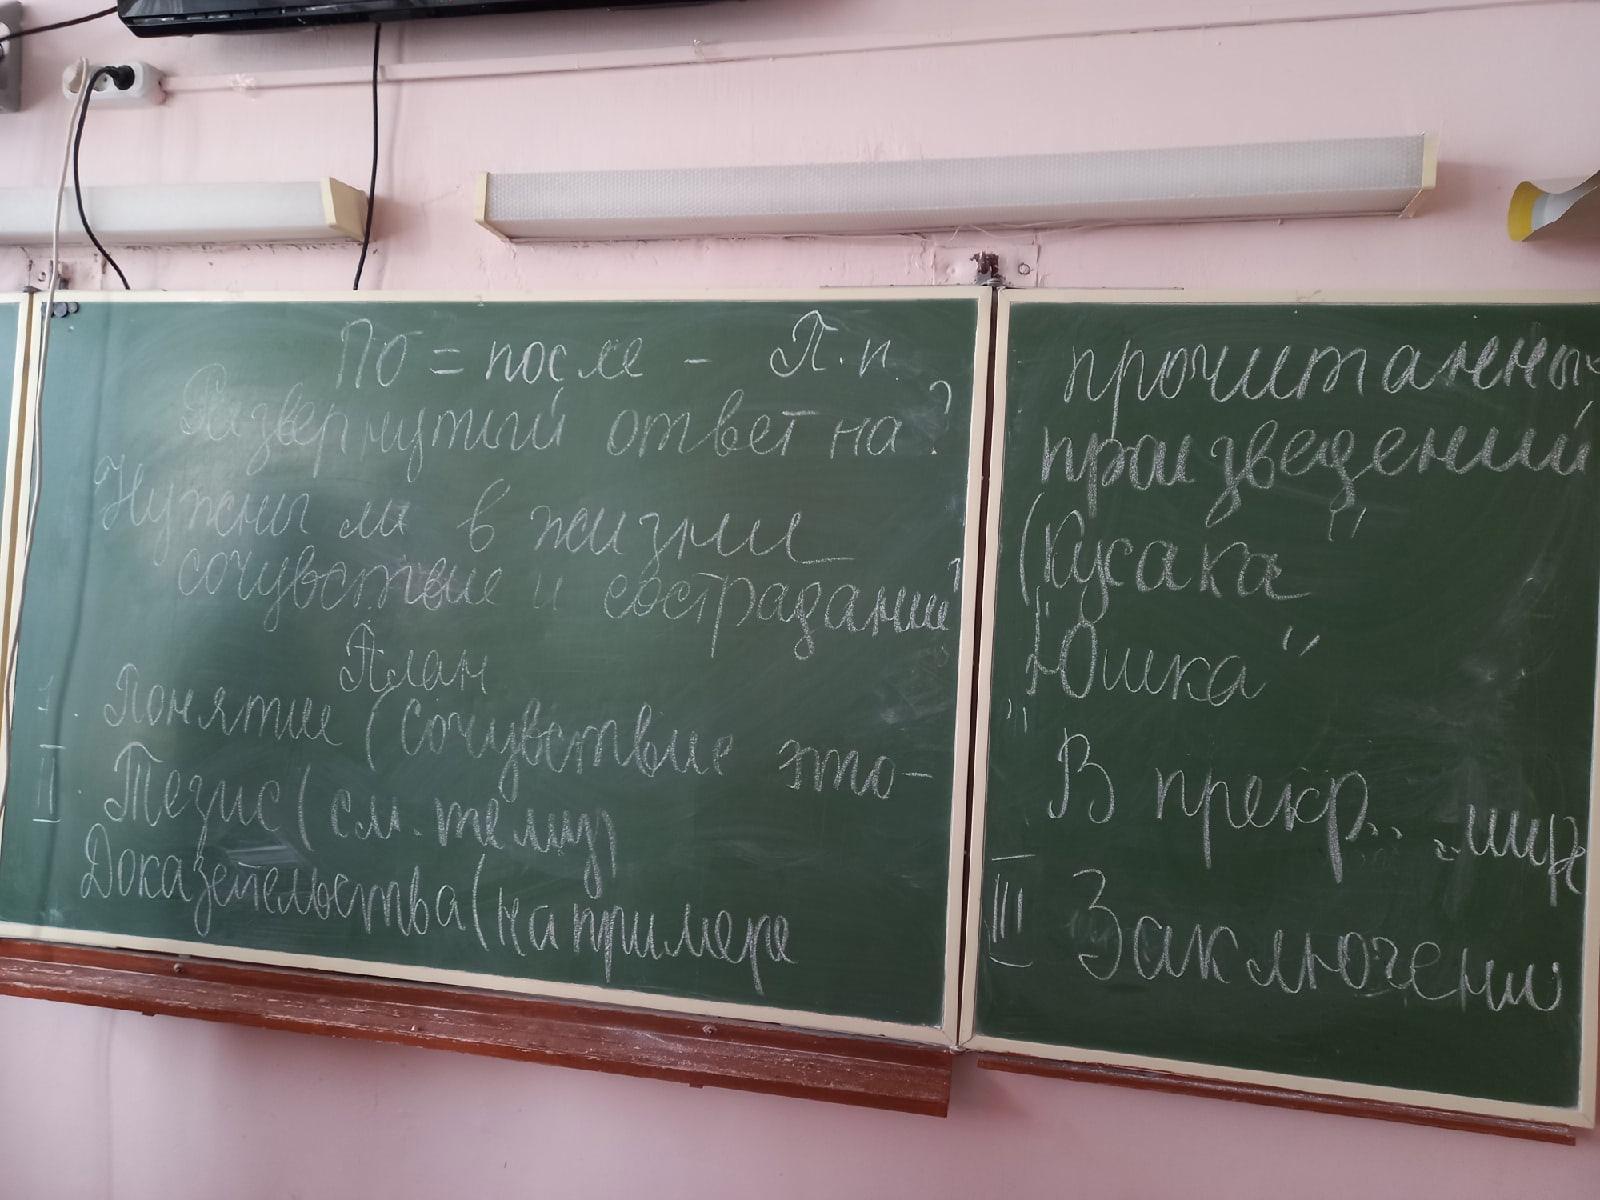 По = после - П.п.
Развернутый ответ на ?
Нужны ли в жизни
сочувствие и сострадание?
План
I. Понятие (сочувствие это-
II. Тезис (см. тему)
Доказательства (на примере
прочитанных
произведений
("Кусака"
"Юшка"
"В прекр... мире
III Заключени